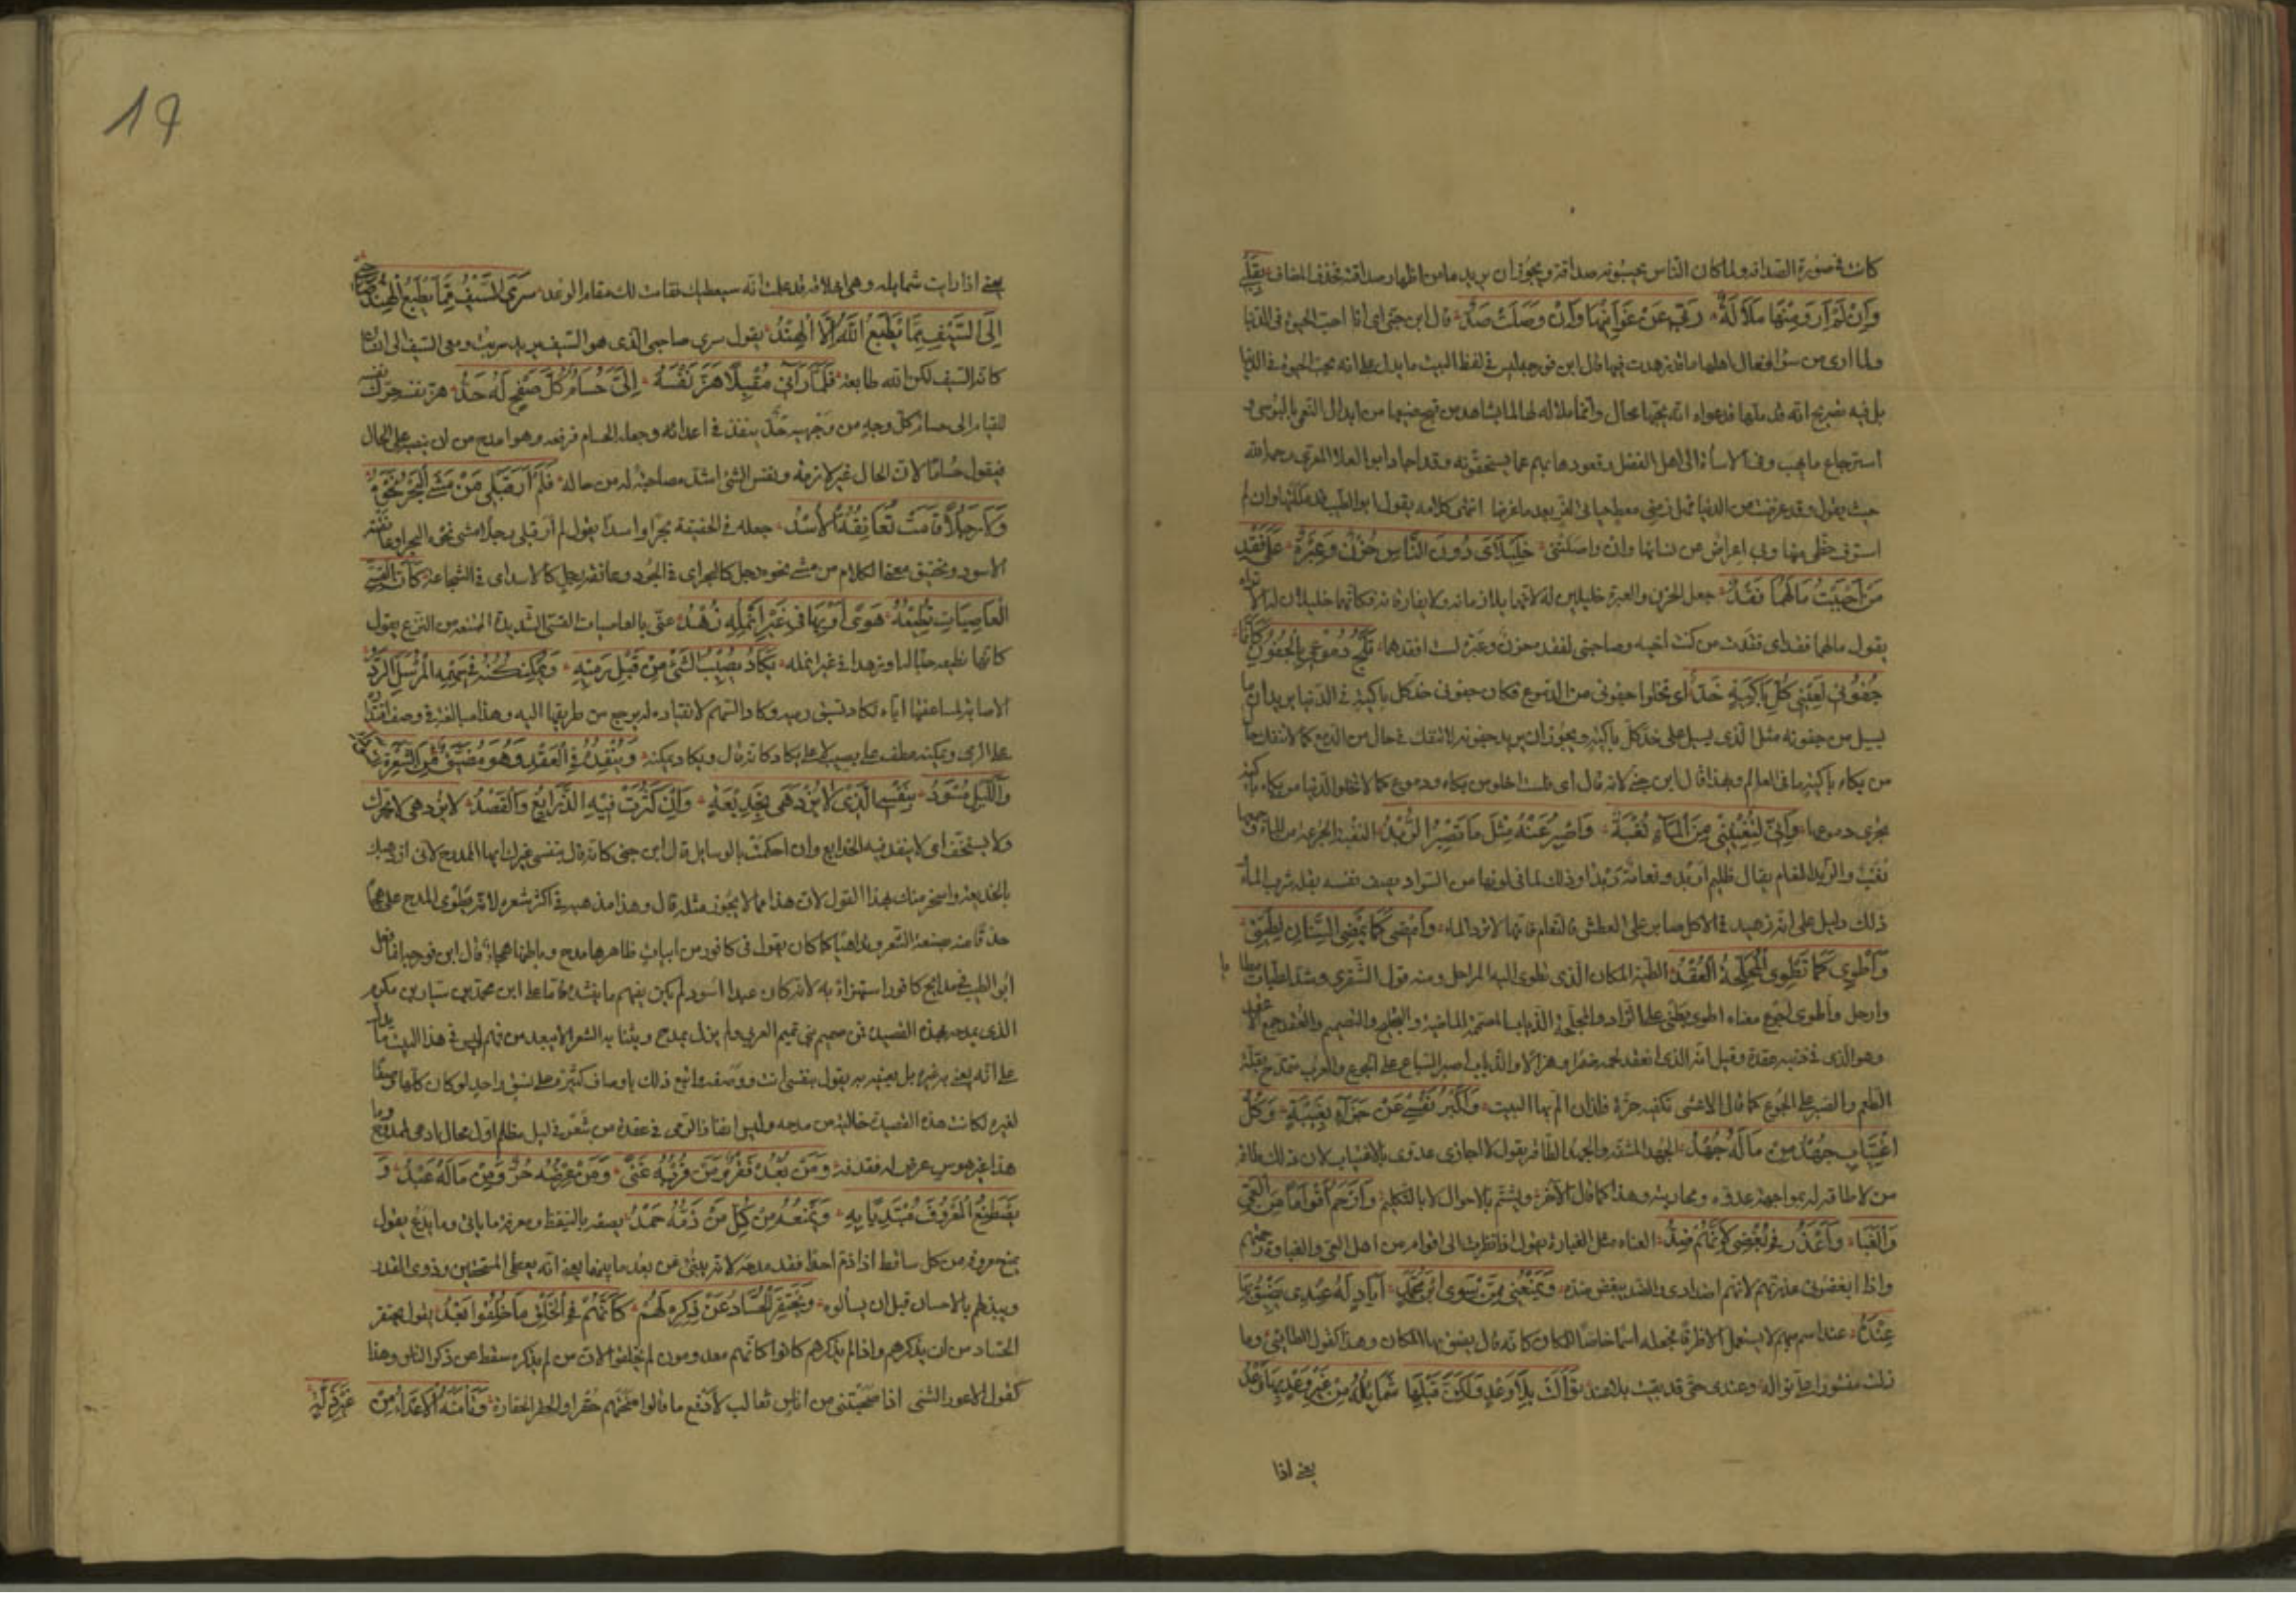 كانت في صورة الصداقة ولما كان الناس يحسبونه صداقة ويجوز ان يريد ما من اظهار صداقته فحذف المضاف بقلبي
وَاِنْ لَمْ اَرْوَ مِنْهَا مَلَالَةٌ وَبِي عَنْ غَوَانِيهَا وَاِنْ وَصَلَتْ صَدُّ قال ابن جنى اي انا احب الحيوة في الدنيا
ولما ارى من سوء افعال اهلها ما قد زهدت فيها قال ابن فورجة ليس في لفظ البيت ما يدل على انه يحب الحيوة في الدنيا
بل فيه تصريح انه قد ملها فدعواه انه يحبها محال وانما ملاله لها لما يشاهد من قبح صنيعها من ابدال النعمى بالبوسى و
استرجاع ما تهب وفي الاساءة الى اهل الفضل وقعودها بهم عما يستحقونه وقد اجاد ابو العلا المعرى رحمه الله
حيث يقول وقد غرضت من الدنيا فهل زمني معط حياتي لغر بعد ما غرضا انتهى كلامه يقول ابو الطيب قد مللتها وان لم
استوف حظي منها وبي اعراض عن نسائها وان واصلتني خَلِيلَايَ دُونَ النَّاسِ حُزْنٌ وَعَبْرَةٌ عَلَى فَقْدِ
مَنْ اَحْبَبْتُ مَا لَهُمَا فَقْدُ جعل الحزن والعبرة خليلين له لانهما يلازمانه ولا يفارقانه فكانهما خليلان له الا تراه
يقول ما لهما فقد اى فقدت من كنت احبه وصاحبنى لفقده حزن وعبرة لست افقدهما تَلَجُّ دُمُوعِي بِالْجُفُونِ كَاَنَّمَا
جُفُونِي لِعَيْنَيْ كُلِّ بَاكِيَةٍ خَدُّ اى لا تخلوا جفوني من الدموع فكان جفوني خد كل باكية في الدنيا يريد ان ما
يسيل من جفونه مثل الذي يسيل على خد كل باكية ويجوز ان يريد جفونه لا تنفك في حال من الدمع كما لا تنفك الدنيا
من بكاء باكية ما في العالم وبهذا قال ابن جنى لانه قال اى فلست اخلو من بكاء ودموع كما لا تخلو الدنيا من بكاء باكية
يجرى دموعها وَاِنِّي لَتُغْنِينِي مِنَ الْمَاءِ نُغْبَةٌ وَاَصْبِرُ عَنْهُ مِثْلَ مَا تَصْبِرُ الرُّبْدُ النغبة الجرعة من الماء وجمعها
نُغَبٌ والربد النعام يقال ظليم اربد ونعامة ربداء وذلك لما في لونها من السواد يصف نفسه بقلة شرب الماء
ذلك دليل على انه زهيد في الاكل صابر على العطش كالنعام فانها لا ترد الماء وَاَمْضِي كَمَا يَمْضِي السِّنَانُ لِطِيَّتِي
وَاَطْوِي كَمَا تَطْوِي الْمُجَلِّحَةُ الْعُقْدُ الطية المكان الذي تطوى اليه المراحل ومنه قول الشنفرى وشدت لطيات مطايا
وارحل واطوي اجوع معناه اطوي بطني على الزاد والمجلحة الذياب المصممة الماضية والتجليح والتصميم والعقد جمع الاعقد
وهو الذي في ذنبه عقدة وقيل انه الذي انعقد لحمه ضمرا وهزالا والذياب اصبر السباع على الجوع والعرب تتمدح بقلة
الطعم والصبر على الجوع كما قال الاعشى تكفيه حزة فلذان الم بها البيت وَاُكْبِرُ نَفْسِي عَنْ جَزَاءٍ بِغِيبَةٍ وَكُلُّ
اغْتِيَابٍ جُهْدُ مَنْ مَا لَهُ جُهْدُ الجهد المشقة والجهد الطاقة يقول لا اجازى عدوى بالاغتياب لان ذلك طاقة
من لا طاقة له بمواجهة عدوه ومحاربته وهذا كما قال الآخر ونشتم بالافعال لا بالتكلم وَاَرْحَمُ اَقْوَامًا مِنَ الْعِيِّ
وَالْغَبَا وَاَعْذِرُ فِي بُغْضِي لِاَنَّهُمُ ضِدُّ الغباء مثل الغباوة يقول اذا نظرت الى اقوام من اهل العي والغباوة رحمتهم
واذا ابغضوني عذرتهم لانهم اضدادى والضد يبغض ضده وَيَمْنَعُنِي مِمَّنْ سِوَى ابْنِ مُحَمَّدٍ اَيَادٍ لَهُ عِنْدِي يَضِيقُ بِهَا
عِنْدُ عند اسم مبهم لا يستعمل الا ظرفا فجعله اسما خاصا للمكان كانه قال يضيق بها المكان وهذا كقول الطائي وما
زلت منشورا على نواله وعندى حتى قد بقيت بلا عند تَوَالَتْ بِلَا وَعْدٍ وَلَكِنَّ قَبْلَهَا شَمَائِلُهُ مِنْ غَيْرِ وَعْدٍ بِهَا وَعْدُ
يعنى اذا
17
يعنى اذا رايت شمايله وهي اخلاقه قد علمت انه سيعطيك فقامت لك مقام الوعد سَرَى السَّيْفُ مِمَّا تَطْبَعُ الْهِنْدُ صَاحِبِي
اِلَى السَّيْفِ مِمَّا تَطْبَعُ اللهُ لَا الْهِنْدُ يقول سرى صاحبي الذي هو السيف يريد سريت ومعي السيف الى انسان
كانه السيف لكن الله طابعه فَلَمَّا رَآنِي مُقْبِلًا هَزَّ نَفْسَهُ اِلَيَّ حُسَامٌ كُلُّ صَفْحٍ لَهُ حَدُّ هز نفسه حرك نفسه
للقيام الى حسام كل وجه من وجهيه حد ينفذ في اعدائه وجعله الحسام فرفعه وهو امدح من ان ينصب على الحال
فيقول حسامًا لان الحال غير لازمة ونفس الشئ اشد مصاحبة له من حاله فَلَمْ اَرَ قَبْلِي مَنْ مَشَى الْبَحْرُ نَحْوَهُ
وَلَا رَجُلًا قَامَتْ تُعَانِقُهُ الْاُسْدُ جعله في الحقيقة بحرا واسدا يقول لم ار قبلي رجلا مشى نحوه البحر وعانقته
الاسود وتحقيق معنى الكلام من مشى نحوه رجل كالبحر اى في الجود وعانقه رجل كالاسد اى في الشجاعة كَاَنَّ الْقِسِيَّ
الْعَاصِيَاتِ تُطِيعُهُ هَوًى اَوْ بِهَا فِي غَيْرِ اَنْمُلِهِ زُهْدُ عنى بالعاصيات القسى الشديدة الممتنعة من النزع يقول
كانها تطيعه حبا له او زهدا في غير انمله يَكَادُ يُصِيبُ الشَّيْءَ مِنْ قَبْلِ رَمْيِهِ وَيُمْكِنُهُ فِي سَهْمِهِ الْمُرْسَلِ الرَّدُّ
الاصابة لمساعفتها اياه تكاد تسبق رميه وكاد السهم لانقياده له يرجع من طريقها اليه وهذا مبالغة في وصف اقتداره
على الرمى ويمكنه عطف على يصيب لا على يكاد كانه قال ويكاد يمكنه وَيُنْفِذُهُ فِي الْعَقْدِ وَهُوَ مُضَيَّقٌ مِنَ الشَّعْرَةِ
وَاللَّيْلُ مُسْوَدُّ بِنَفْسِي الَّذِي لَا يُزْدَهَى بِخَدِيعَةٍ وَاِنْ كَثُرَتْ فِيهِ الذَّرَايِعُ وَالْقَصْدُ لا يزدهى لا يحرك
ولا يستخف اى لا ينفذ فيه الخدايع وان احكمت بالوسايل قال ابن جنى كانه قال بنفسي غيرك ايها الممدوح لانى ازدهيك
بالخديعة واسخر منك بهذا القول لان هذا مما لا يجوز مثله قال وهذا مذهبه في اكثر شعره لانه يطوى المدح على هجاء
حذقا منه بصنعة الشعر كما كان يقول في كافور من ابيات ظاهرها مدح وباطنها هجاء قال ابن فورجة انما فعل
ابو الطيب في مدايح كافور استهزاء به لانه كان عبدا اسود لم يكن يفهم ما ينشده فاما على ابن محمد بن سيار بن مكرم
الذى يمدحه بهذه القصيدة فمن صميم بني تميم العربي ولم يزل يمدح وينتابه الشعراء لا يبعد من فهم ليس في هذا البيت ما يدل
على انه يعنى به غيره بل يعنيه به يقول بنفسي انت ووصفه واتبع ذلك باوصاف كثيرة على نسق واحد لو كان كلها وصفا
لغيره لكانت هذه القصيدة خالية من مدحه وليس انفاذ الرمى في عقدة من شعره في ليل مظلم اول محال ادعى للممدوح وما
هذا غير هوس عرض له فقذفه وَمَنْ بُعْدُهُ فَقْرٌ وَمَنْ قُرْبُهُ غِنًى وَمَنْ عِرْضُهُ حُرٌّ وَمَنْ مَالُهُ عَبْدُ وَ
يَصْطَنِعُ الْمَعْرُوفَ مُبْتَدِيًا بِهِ وَيَمْنَعُهُ مِنْ كُلِّ مَنْ ذَمُّهُ حَمْدُ يصفه بالتيقظ ومعرفة ما ياتى وما يدع يقول
يمنع معروفه من كل ساقط اذا ذم احدا فقد مدحه لانه ينبئ عن بعد ما بينهما يعنى انه يعطى المستحقين وذوى القدر
ويبدؤهم بالاحسان قبل ان يسألوه وَيَحْتَقِرُ الْحُسَّادَ عَنْ ذِكْرِهِ لَهُمْ كَاَنَّهُمُ فِي الْخَلْقِ مَا خُلِقُوا بَعْدُ يقول يحتقر
الحساد من ان يذكرهم واذا لم يذكرهم كانوا كانهم معدومون لم يخلقوا لان من لم يذكره سقط عن ذكر الناس وهذا
كقول الاعور الشنى اذا صحبتنى من اناس ثعالب لادفع ما قالوا منحتهم حقرا والحقر الحقارة وَتَأْمَنُهُ الْاَعْدَاءُ مِنْ غَيْرِ ذِلَّةٍ